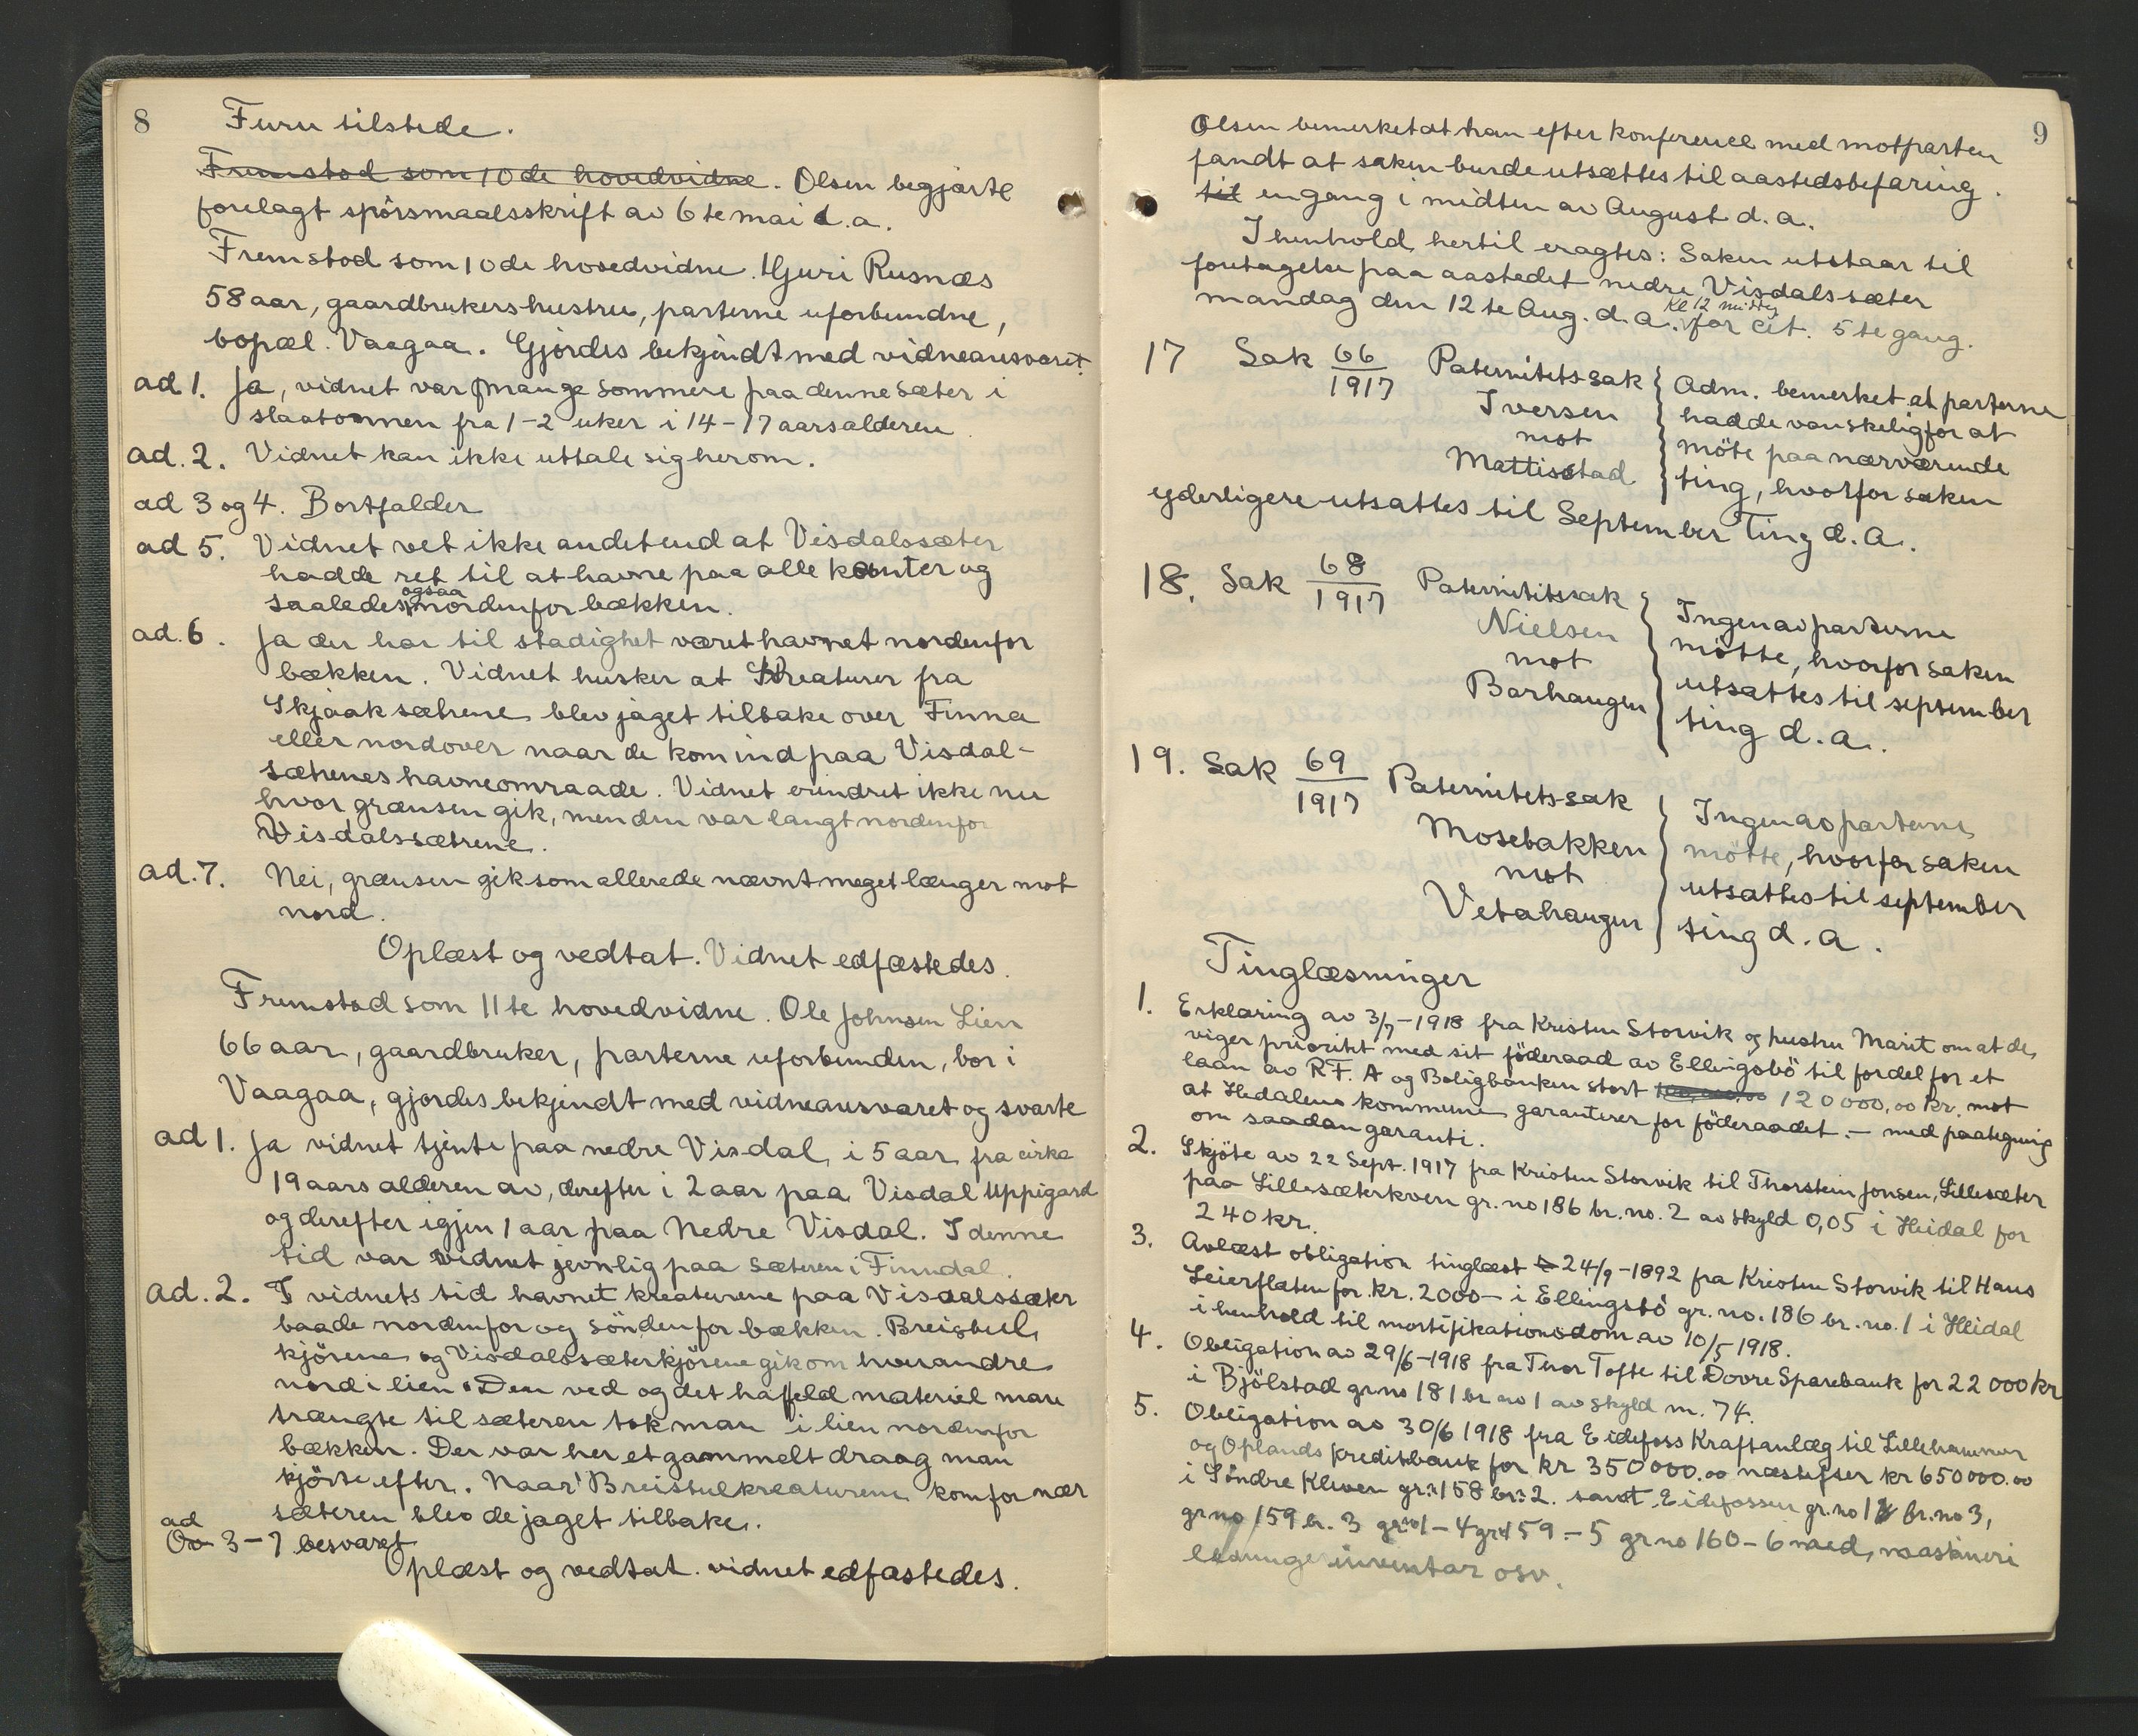 8
Furu tilstede.
Fremstod som 10de hovedvidne. Olsen begjærte
forelagt spörsmaalsskrift av 6te mai d.a.
Fremstod som 10de hovedvidne. Guri Rusnæs
58 aar, gaardbrukershustru, parterne uforbundne,
bopæl Vaagaa. Gjordes bekjendt med vidneansvaret.
ad 1. Ja, vidnet var mange sommere paa denne sæter i
slaatonnen fra 1-2 uker i 14-17 aarsalderen
ad. 2. Vidnet kan ikke uttale sig herom.
ad 3 og 4. Bortfalder
ad 5. Vidnet vet ikke andet end at Visdalssæter
hadde ret til at havne paa alle kanter og
saaledes ogsaa nordenfor bækken.
ad. 6. Ja der har til stadighet været havnet nordenfor
bækken. Vidnet husker at Kreaturer fra
Skjaaksætrene blev jaget tilbake over Finna
eller nordover naar de kom ind paa Visdal-
sætrenes havneomraade. Vidnet erindret ikke nu
hvor grænsen gik, men den var langt nordenfor
Visdalssætrene.
ad. 7. Nei, grænsen gik som allerede nævnt meget længer mot
nord.
Oplæst og vedtat. Vidnet edfæstedes.
Fremstod som 11te hovedvidne. Ole Johnsen Lien
66 aar, gaardbruker, parterne uforbunden, bor i
Vaagaa, gjordes bekjendt med vidneansvaret og svarte
ad 1. Ja vidnet tjente paa nedre Visdal i 5 aar fra cirka
19 aars alderen av, derefter i 2 aar paa Visdal Uppigard
og derefter igjen 1 aar paa Nedre Visdal. I denne
tid var vidnet jevnlig paa sæteren i Finndal.
ad. 2. I vidnets tid havnet kreaturene paa Visdalssæter
baade nordenfor og söndenfor bækken. Breistul
kjörene og Visdalssæterkjörene gik om hverandre
nord i lien. Den ved og det haffeld materiel man
trængte til sæteren tok man i lien nordenfor
bækken. Der var her et gammelt draag man
kjörte efter. Naar Breistulkreaturene kom for nær
sæteren blev de jaget tilbake.
ad 3-7 besvaret
Oplæst og vedtat. vidnet edfæstedes.
9
Olsen bemerket at han efter konference med motparten
fandt at saken burde utsættes til aastedsbefaring.
til engang i midten av August d.a.
I henhold hertil eragtes: Saken utstaar til
foretagelse paa aastedet nedre Visdalssæter
mandag den 12te Aug. d.a. Kl 12 middag for eet. 5te gang.
17 Sak 66/1917 Paternitetssak Adm. bemerket at parterne
Iversen hadde vanskelig for at
mot möte paa nærværende
Mattisstad ting, hvorfor saken
yderligere utsattes til September Ting d.a.
18. Sak 68/1917 Paternitetssak Ingen av parterne
Nielsen mötte, hvorfor saken
mot utsattes til september
Barhaugen ting d.a.
19. Sak 69/1917 Paternitetssak Ingen av parterne
Mosebakken mötte, hvorfor saken
mot utsattes til september
Vetahaugen ting d.a.
Tinglæsninger
1. Erklæring av 3/7-1918 fra Kristen Storvik og hustru Marit om at de
viger prioritet med sit föderaad av Ellingsbö til fordel for et
laan av R.F. A og Boligbanken stort 120000,00 kr. mot
at Hedalens kommune garanterer for föderaadet.- med paategning
om saadan garanti.
2. Skjöte av 22 Sept. 1917 fra Kristen Storvik til Thorstein Jonsen, Lillesæter
paa Lillesæterkven gr. no 186 br. no. 2 av skyld 0,05 i Heidal for
240 kr.
3. Avlæst obligation tinglæst 24/9-1892 fra Kristen Storvik til Hans
Leierflaten for kr. 2000- i Ellingsbö gr. no. 186 br. no. 1 i Heidal
i henhold til mortifikationsdom av 10/5 1918.
4. Obligation av 29/6-1918 fra Thor Tofte til Dovre Sparebank for 22000 kr
i Bjölstad gr no 181 br no 1 av skyld m. 74.
5. Obligation av 30/6 1918 fra Eidefoss Kraftanlæg til Lillehammer
og Oplands Kreditbank for kr 350000.00 næstefter kr 650000.00
i Söndre Kleven gr. 158 br. 2. samt Eidefossen gr. no 1 br. no 3,
gr no 159 br. 3 gr 1-4 gr 159-5 gr no 160-6 med, maskineri
ledninger inventar osv.